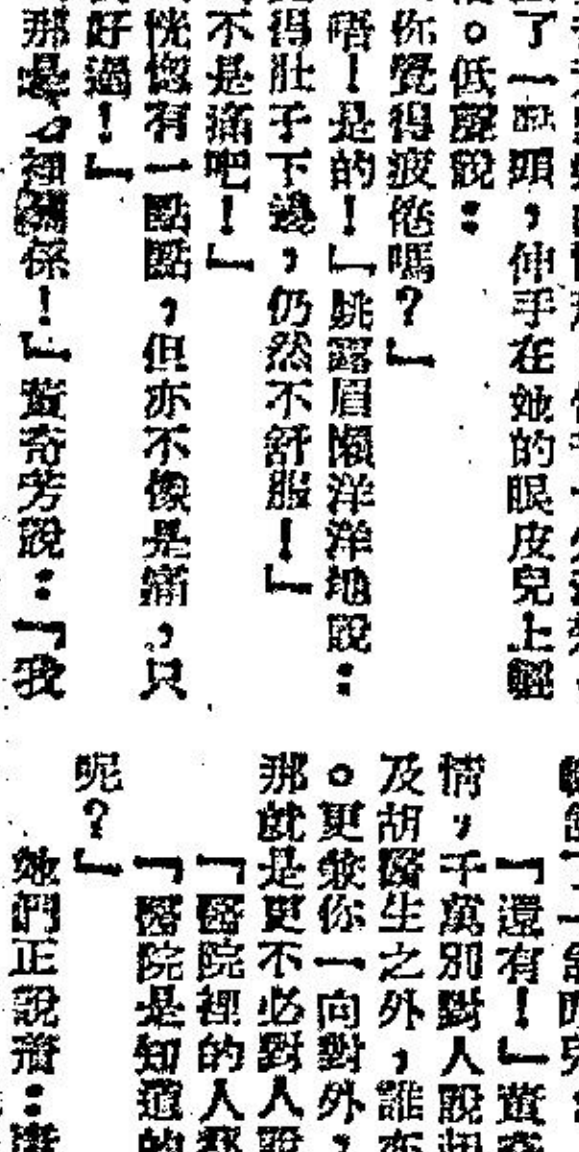 了一點頭，伸手在她的眼皮兒上輕
。低聲說：
你覺得疲倦嗎？」
唔！是的！」姚露眉懶洋洋地說：
得肚子下邊，仍然不舒服！」
不是痛吧！」
恍惚有一點點，但亦不像是痛，只
好過！」
那是 關係！」董奇芳說：「我
「還有！」董
情，千萬別對人說
及胡醫生之外，誰亦
。更兼你一向對外，
那就是更不必對人說
「醫院裡的人
「醫院是知道的
呢？」
她們正說著：